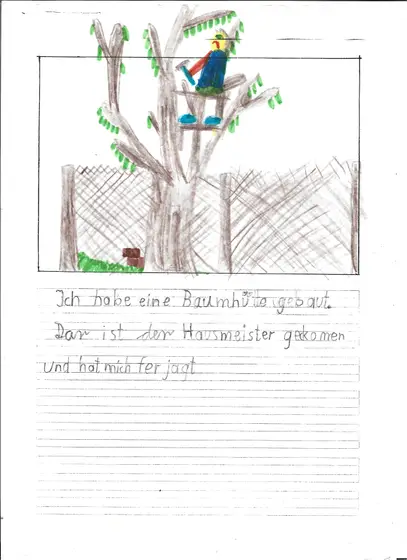 Ich habe eine Baumhütte gebaut.
Dar ist der Hausmeister gekomen
und hat mich fer jagt